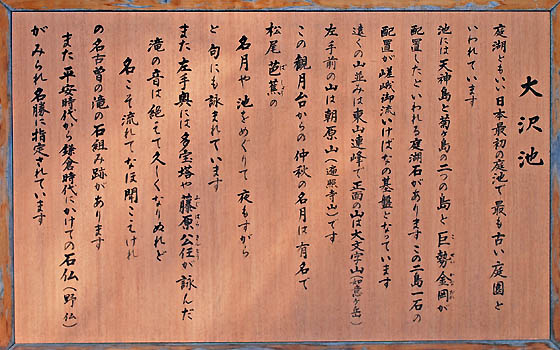 大沢池
庭湖ともいい日本最初の庭池で最も古い庭園と
いわれています
池には天神島と菊ヶ島の二つの島と巨勢金岡が
配置したといわれる庭湖石があります この二島一石の
配置が嵯峨御流いけばなの基盤となっています
遠くの山並みは東山連峰で正面の山は大文字山(如意ヶ岳)
左手前の山は朝原山(遍照寺山)です
この観月台からの仲秋の名月は有名で
松尾芭蕉の
名月や池をめぐりて夜もすがら
と句にも詠まれています
また左手奥には多宝塔や藤原公任が詠んだ
滝の音は絶えて久しくなりぬれど
名こそ流れてなほ聞こえけれ
の名古曽の滝の石組み跡があります
また平安時代から鎌倉時代にかけての石仏(野仏)
がみられ名勝に指定されています